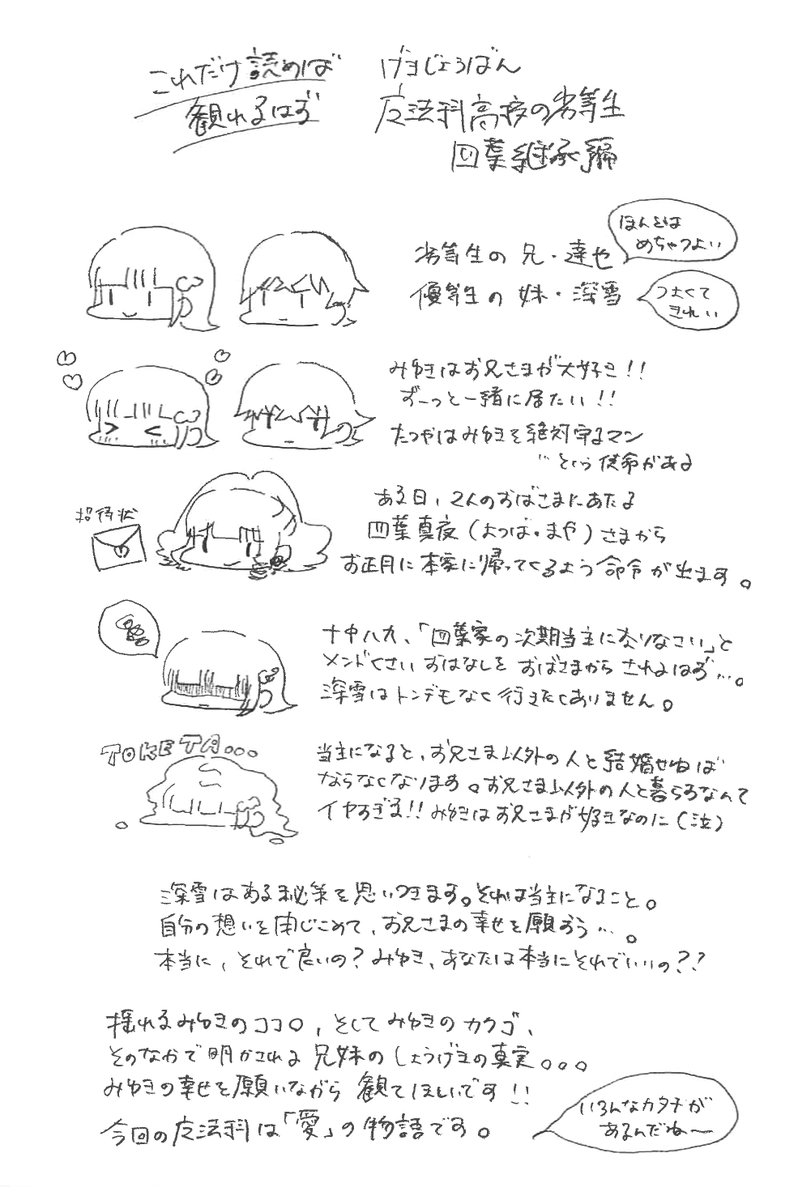 これだけ読めば
観れるはず
げきじょうばん
广法科高校の劣等生
四葉継承編
劣等生の兄・達也
ほんとは
めちゃつよい
優等生の妹・深雪
つよくて
きれい
みゆきはお兄さまが大好き!!
ずーっと一緒に居たい!!
たつやはみゆきを絶対守るマン
という使命がある
招待状
ある日、2人のおばさまにあたる
四葉真夜(よつば・まや)さまから
お正月に本家に帰ってくるよう命令が出ます。
十中八九、「四葉家の次期当主になりなさい」と
メンドくさいおはなしをおばさまからされるはず…。
深雪はトンデモなく行きたくありません。
TOKETA...
当主になると、お兄さま以外の人と結婚せねば
ならなくなります。お兄さま以外の人と暮らすなんて
イヤすぎる!!みゆきはお兄さまが好きなのに(泣)
深雪はある秘策を思いつきます。それは当主になること。
自分の想いを閉じこめて、お兄さまの幸せを願おう…。
本当に、それで良いの?みゆき、あなたは本当にそれでいいの??
揺れるみゆきのココロ、そしてみゆきのカクゴ、
そのなかで明かされる兄妹のしょうげきの真実。。。
みゆきの幸せを願いながら観てほしいです!!
今回の广法科は「愛」の物語です。
いろんなカタチが
あるんだね〜